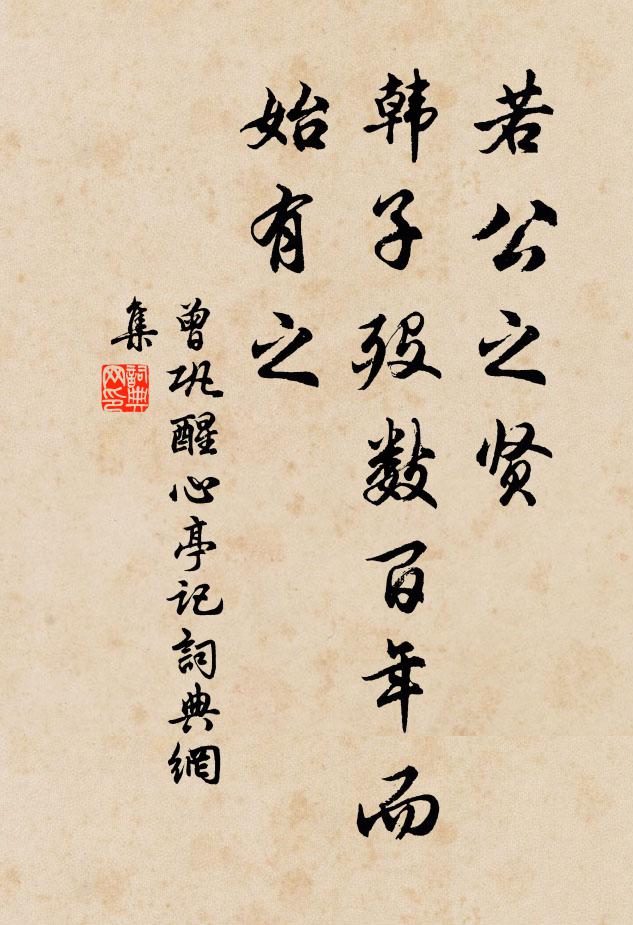 若公之贤
韩子殁数百年而
始有之
曾巩醒心亭记詞典網
集
詞典
网印